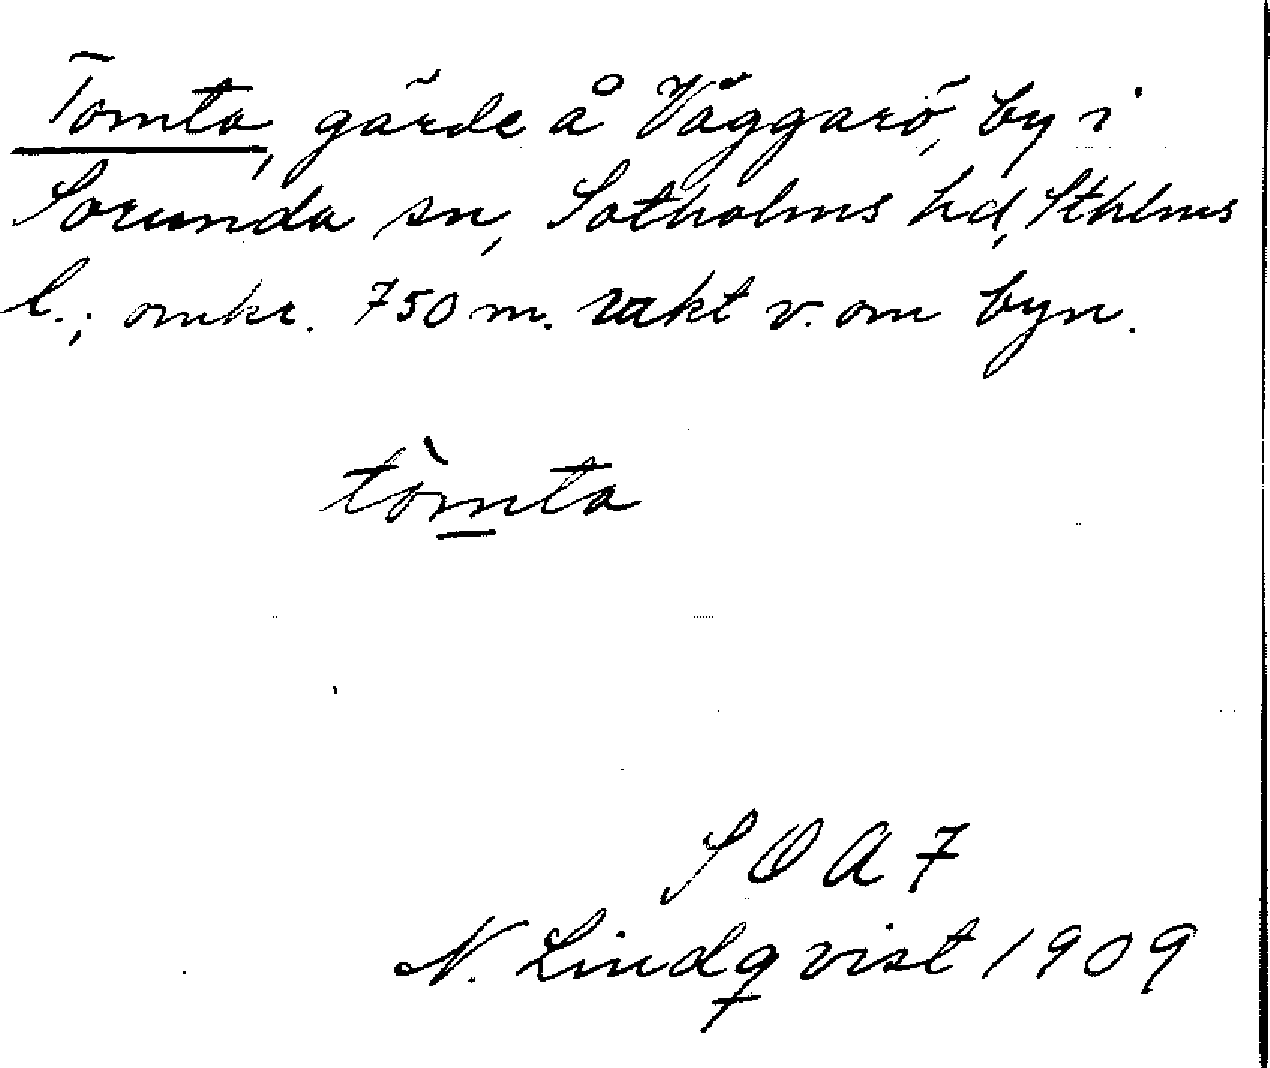 Tomta, gärde å Väggarö, by i
Sorunda sn, Sotholms hd, Sthlms
l.; omkr. 750 m. rakt v. om byn.
tòmta
SOA 7
N. Lindqvist 1909